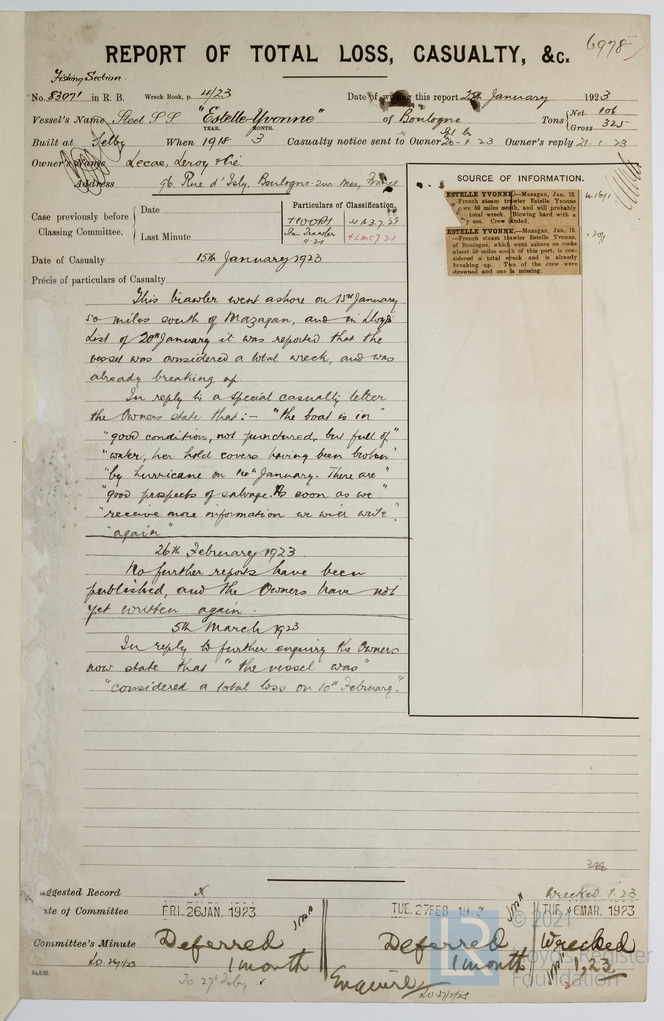 6978
REPORT OF TOTAL LOSS, CASUALTY, &c.
Fishing Section.
No. 83071 in R. B. Wreck Book, p. 4/23 Date of this report January 1923
Vessel's Name Steel SS "Estelle-Yvonne" of Boulogne Tons { Net 106 Gross 325
Built at Selby When 1918 3 YEAR. MONTH. Casualty notice sent to Owner 20-1-23 Owner's reply 21.1.23
Owner's Name Lecas, Leroy & Cie
Address 96 Rue d'Isly, Boulogne-sur-Mer, France
Case previously before Classing Committee.
Date
Last Minute
Particulars of Classification.
SOURCE OF INFORMATION.
ESTELLE YVONNE.—Mazagan, Jan. 15.
—French steam trawler Estelle Yvonne
50 miles south, and will probably
total wreck. Blowing hard with a
sea. Crew landed.
ESTELLE YVONNE.—Mazagan, Jan. 15.
—French steam trawler Estelle Yvonne,
of Boulogne, which went ashore on rocks
about 50 miles south of this port, is con-
sidered a total wreck and is already
breaking up. Two of the crew were
drowned and one is missing.
Date of Casualty 15th January 1923
Précis of particulars of Casualty
This trawler went ashore on 15th January
50 miles south of Mazagan, and in Lloyd's
List of 20th January it was reported that the
vessel was considered a total wreck, and was
already breaking up.
In reply to a special casualty letter
the Owners state that:— "the boat is in"
"good condition, not punctured, but full of"
"water, her hold covers having been broken"
"by hurricane on January. There are"
"good prospects of salvage. As soon as we"
"receive more information we will write"
"again"
26th February 1923
No further reports have been
published, and the Owners have not
yet written again.
5th March 1923
In reply to further enquiry the Owners
now state that "the vessel was"
"considered a total loss on 10th February."
Suggested Record X Wrecked 1.23
Date of Committee FRI. 26 JAN. 1923 TUE. 27 FEB 192 TUE. 6 MAR. 1923
Committee's Minute Deferred 1 month Deferred 1 month Wrecked 1,23
To 27th Feby
Enquire
© 2021
Lloyd's Register
Foundation